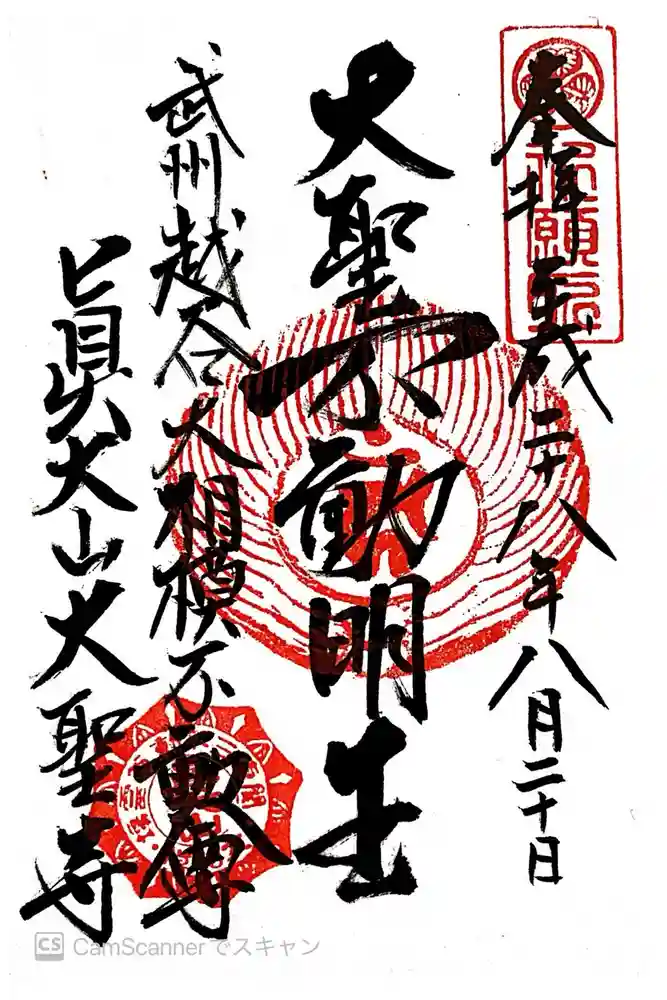 奉拝 平成二十八年八月二十日
祈願所
大聖不動明王
武州越谷大相模不動尊
真大山大聖寺
CS CamScannerでスキャン